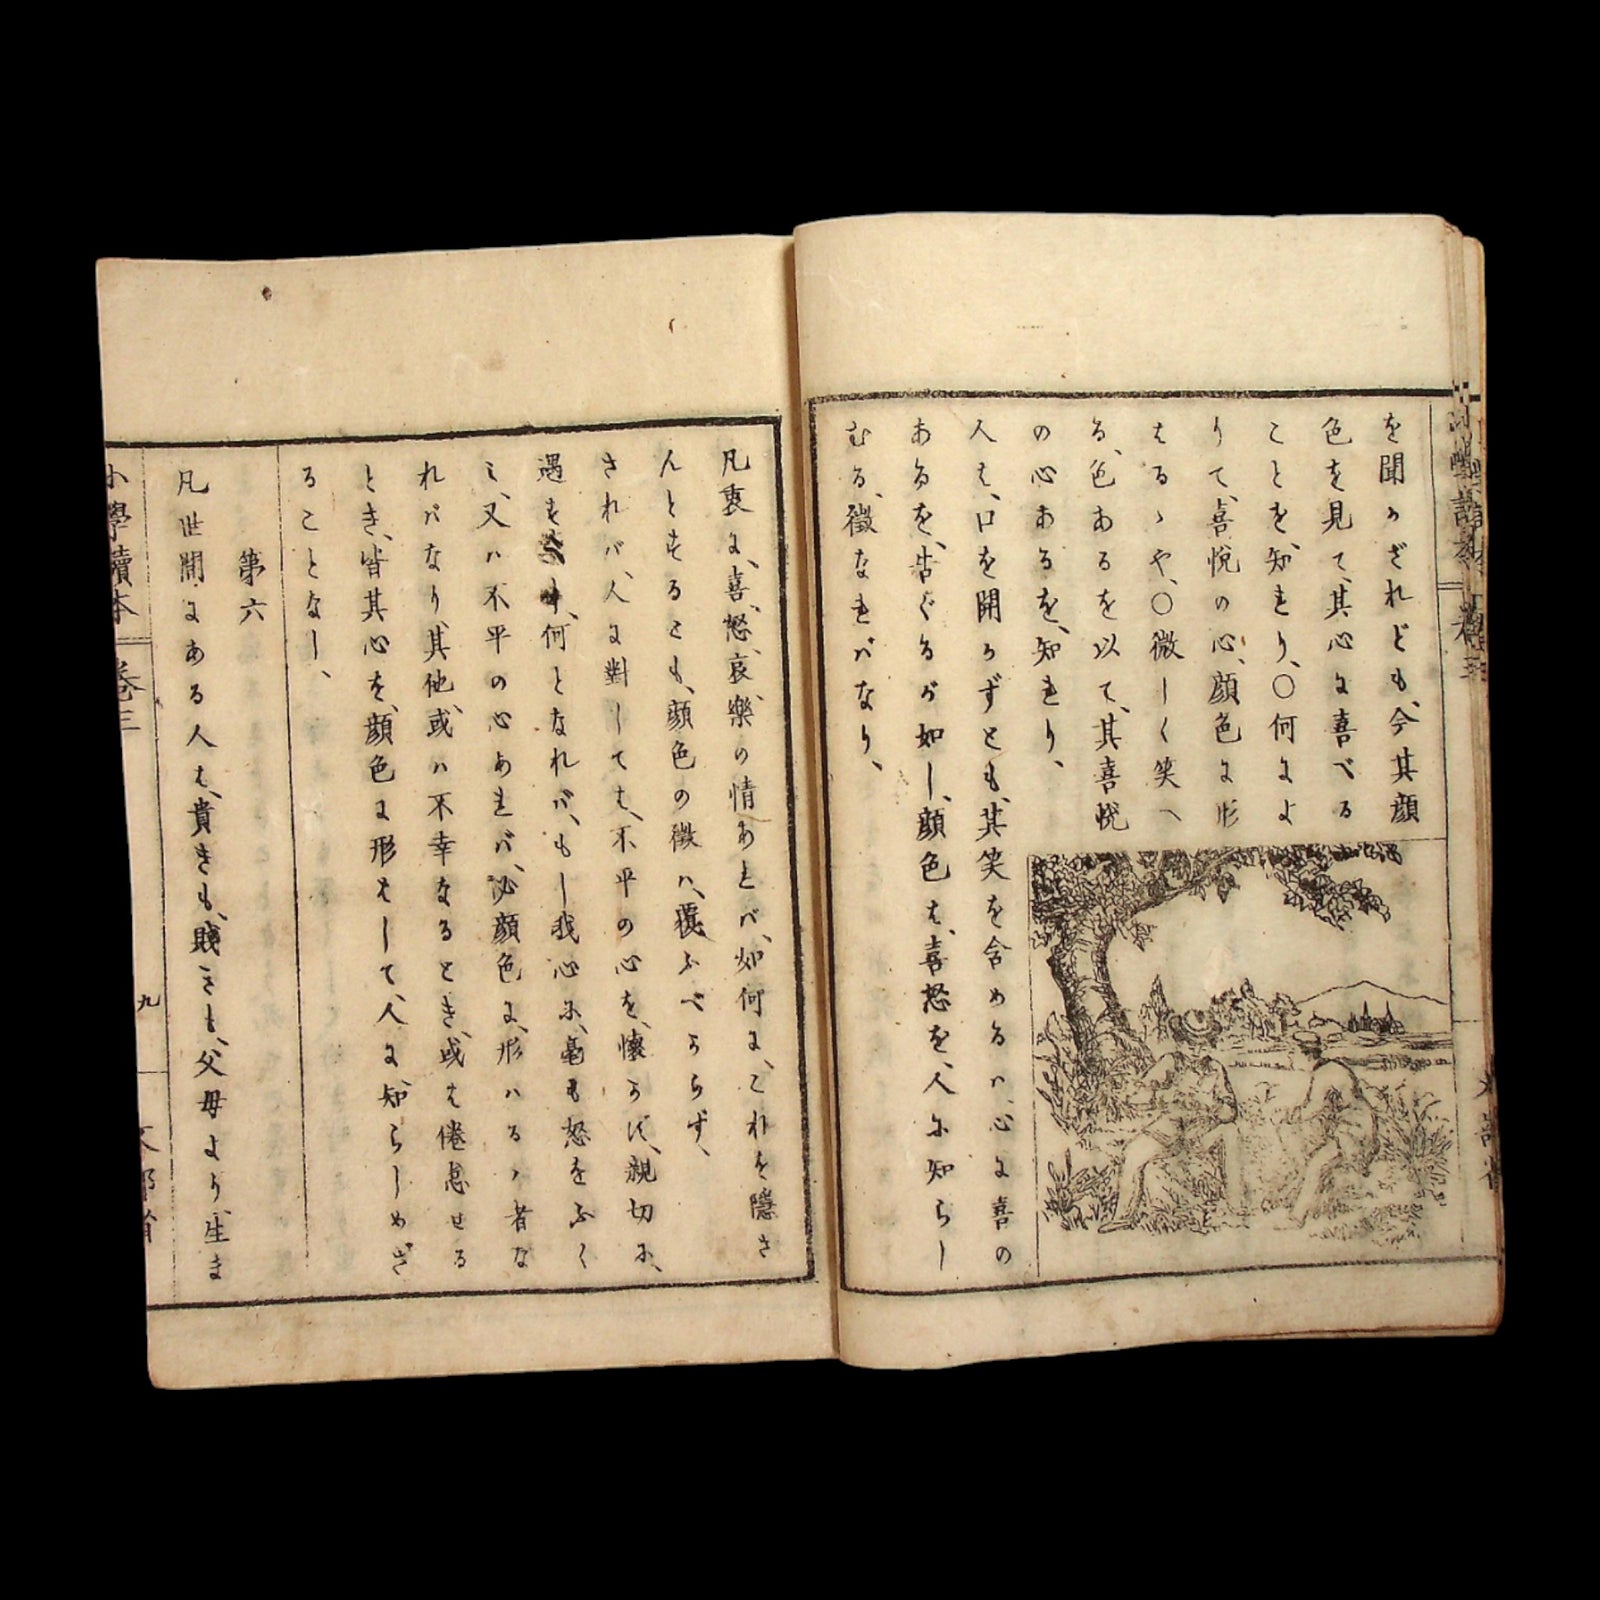 を聞かざれども、今其顔
色を見て、其心に喜べる
ことを、知れり、○何によ
りて、喜悦の心、顔色に形
はるゝや、○微しく笑へ
る、色あるを以て、其喜悦
の心あるを、知れり、
人は、口を開かずとも、其笑を含めるハ、心に喜の
あるを、告ぐるが如し、顔色は、喜怒を、人に知らし
むる、徴なればなり、
凡衷に、喜、怒、哀、樂の情あれバ、如何に、これを隠さ
んとするとも、顔色の徴ハ、覆ふべからず、
されバ、人に對しては、不平の心を、懐かば、親切に、
遇する 何となれバ、もし我心に、毫も怒をふく
ミ、又ハ不平の心あれバ、必顔色に、形ハるゝ者な
れバなり、其他、或ハ不幸なるとき、或は倦怠せる
とき、皆其心を、顔色に形はして、人に知らしめざ
ることなし、
第六
凡世間にある人は、貴きも、賎きも、父母より、生ま
小學讀本 巻三 九 文部省